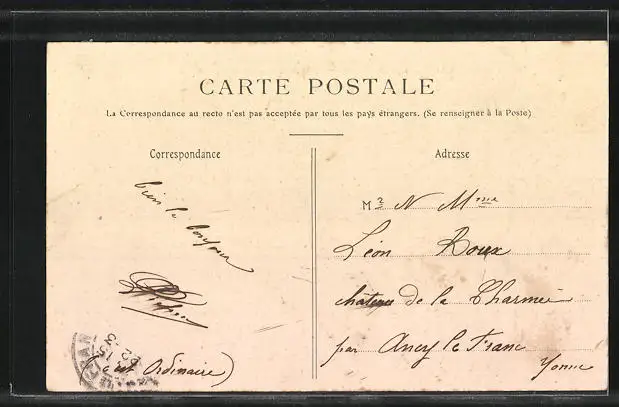 CARTE POSTALE
La Correspondance au recto n'est pas acceptée par tous les pays étrangers. (Se renseigner à la Poste)
Correspondance
bien le bonjour
(est Ordinaire)
Adresse
Mr N Mme
Léon Roux
château de la Charmée
par Ancy le Franc
Yonne